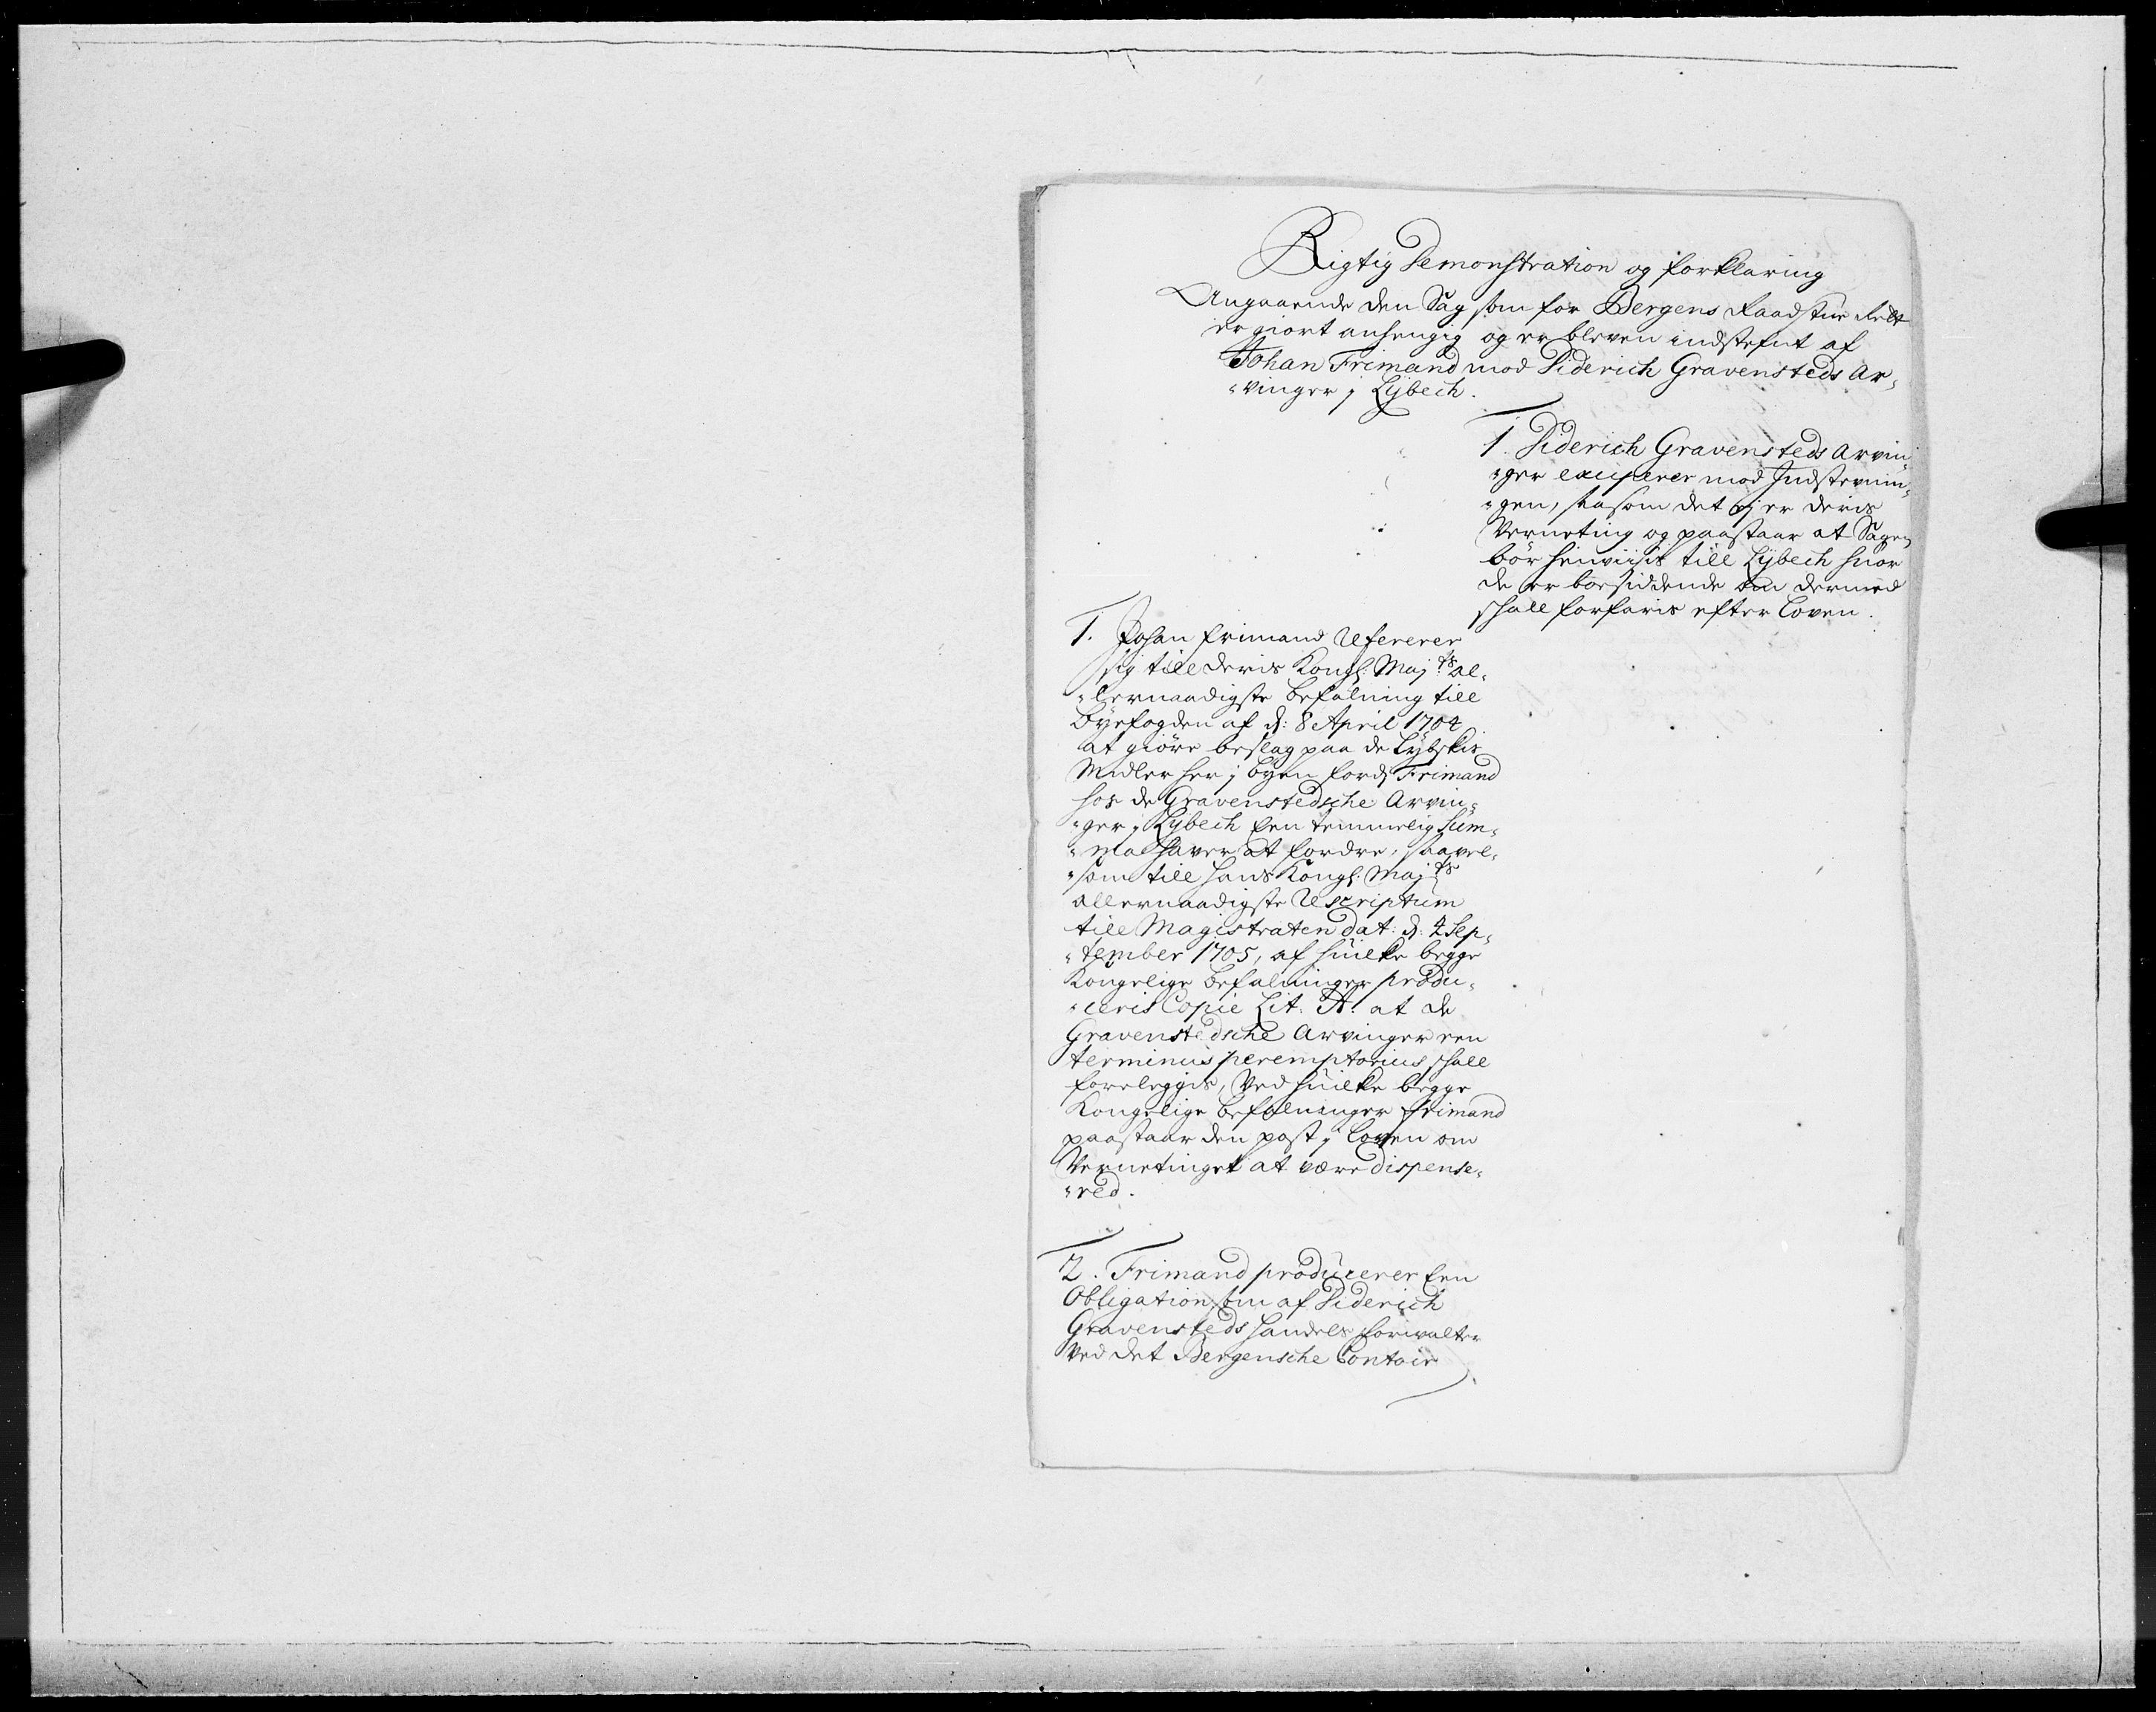 Rigtig Demonstration og forklaring
Angaaende den Sag som for Bergens Raadstue Rett
er giort anhengig og er bleven indstefnt af
Johan Frimand mod Diderich Gravensteds Ar-
-vinger j Lÿbech.
1. Diderich Gravensteds Arvin-
-ger exciperer mod Indstevnin-
-gen, saasom det ej er deris
Verneting og paastaar at Sagen
bör henviisis till Lÿbech huor
de er boesiddende om dermed
skall forfaris efter Loven.
1. Johan Frimand Refererer
sig till deris Kongl: Maj:ts al-
-lernaadigste Befalning till
Byefogden af d: 8 April 1704
at giöre beslag paa de Lÿbskis
Midler her j byen fordj Frimand
hos de Gravenstedsche Arvin-
-ger j Lÿbech Een temmelig Sum-
-ma haver at fordre, saavel-
-som till hans Kongl: Maj:ts
allernaadigste Rescriptum
till Magistraten dat: d: 4 Sep-
-tember 1705, af huilke begge
Kongelige Befalninger produ-
-ceris Copie Lit: A: at de
Gravenstedsche Arvinger een
terminus peremptorius skall
foreleggis, Ved huilke begge
Kongelige Befalninger Frimand
paastaar den post j Loven om
Vernetinget at være dispense-
-red.
2. Frimand producerer Een
Obligation som af Diderich
Gravensteds Handels forvalter
ved det Bergensche Contoir